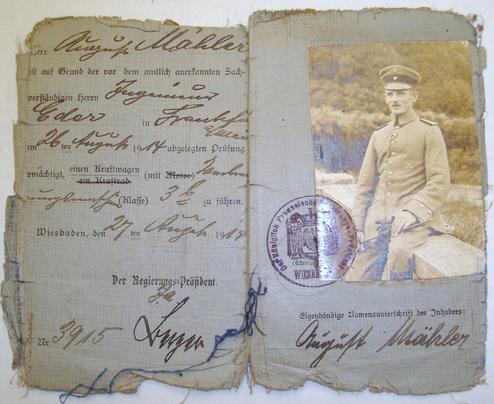 Herr August Mähler
ist auf Grund der vor dem amtlich anerkannten Sach-
verständigen Herrn Ingenieur
Eder in Frankfurt
Main
am 26 ten August 1914 abgelegten Prüfung
ermächtigt, einen Kraftwagen (mit
ein Kraftrad Motor)
ungsmaschine (Klasse) 3 b zu führen.
Wiesbaden, den 27 ten August 1914
Der Regierungs-Präsident.
Nr 3915
Der Königlich Preussische
Eigenhändige Namensunterschrift des Inhabers:
August Mähler